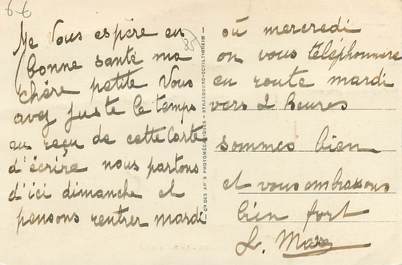 6-6
Je Vous espère en
bonne santé ma
chère petite Vous
avez juste le temps
au reçu de cette carte
d'écrire nous partons
d'ici dimanche et
pensons rentrer mardi
où mercredi
on vous téléphonera
en route mardi
vers 2 heures
sommes bien
et vous embrassons
bien fort